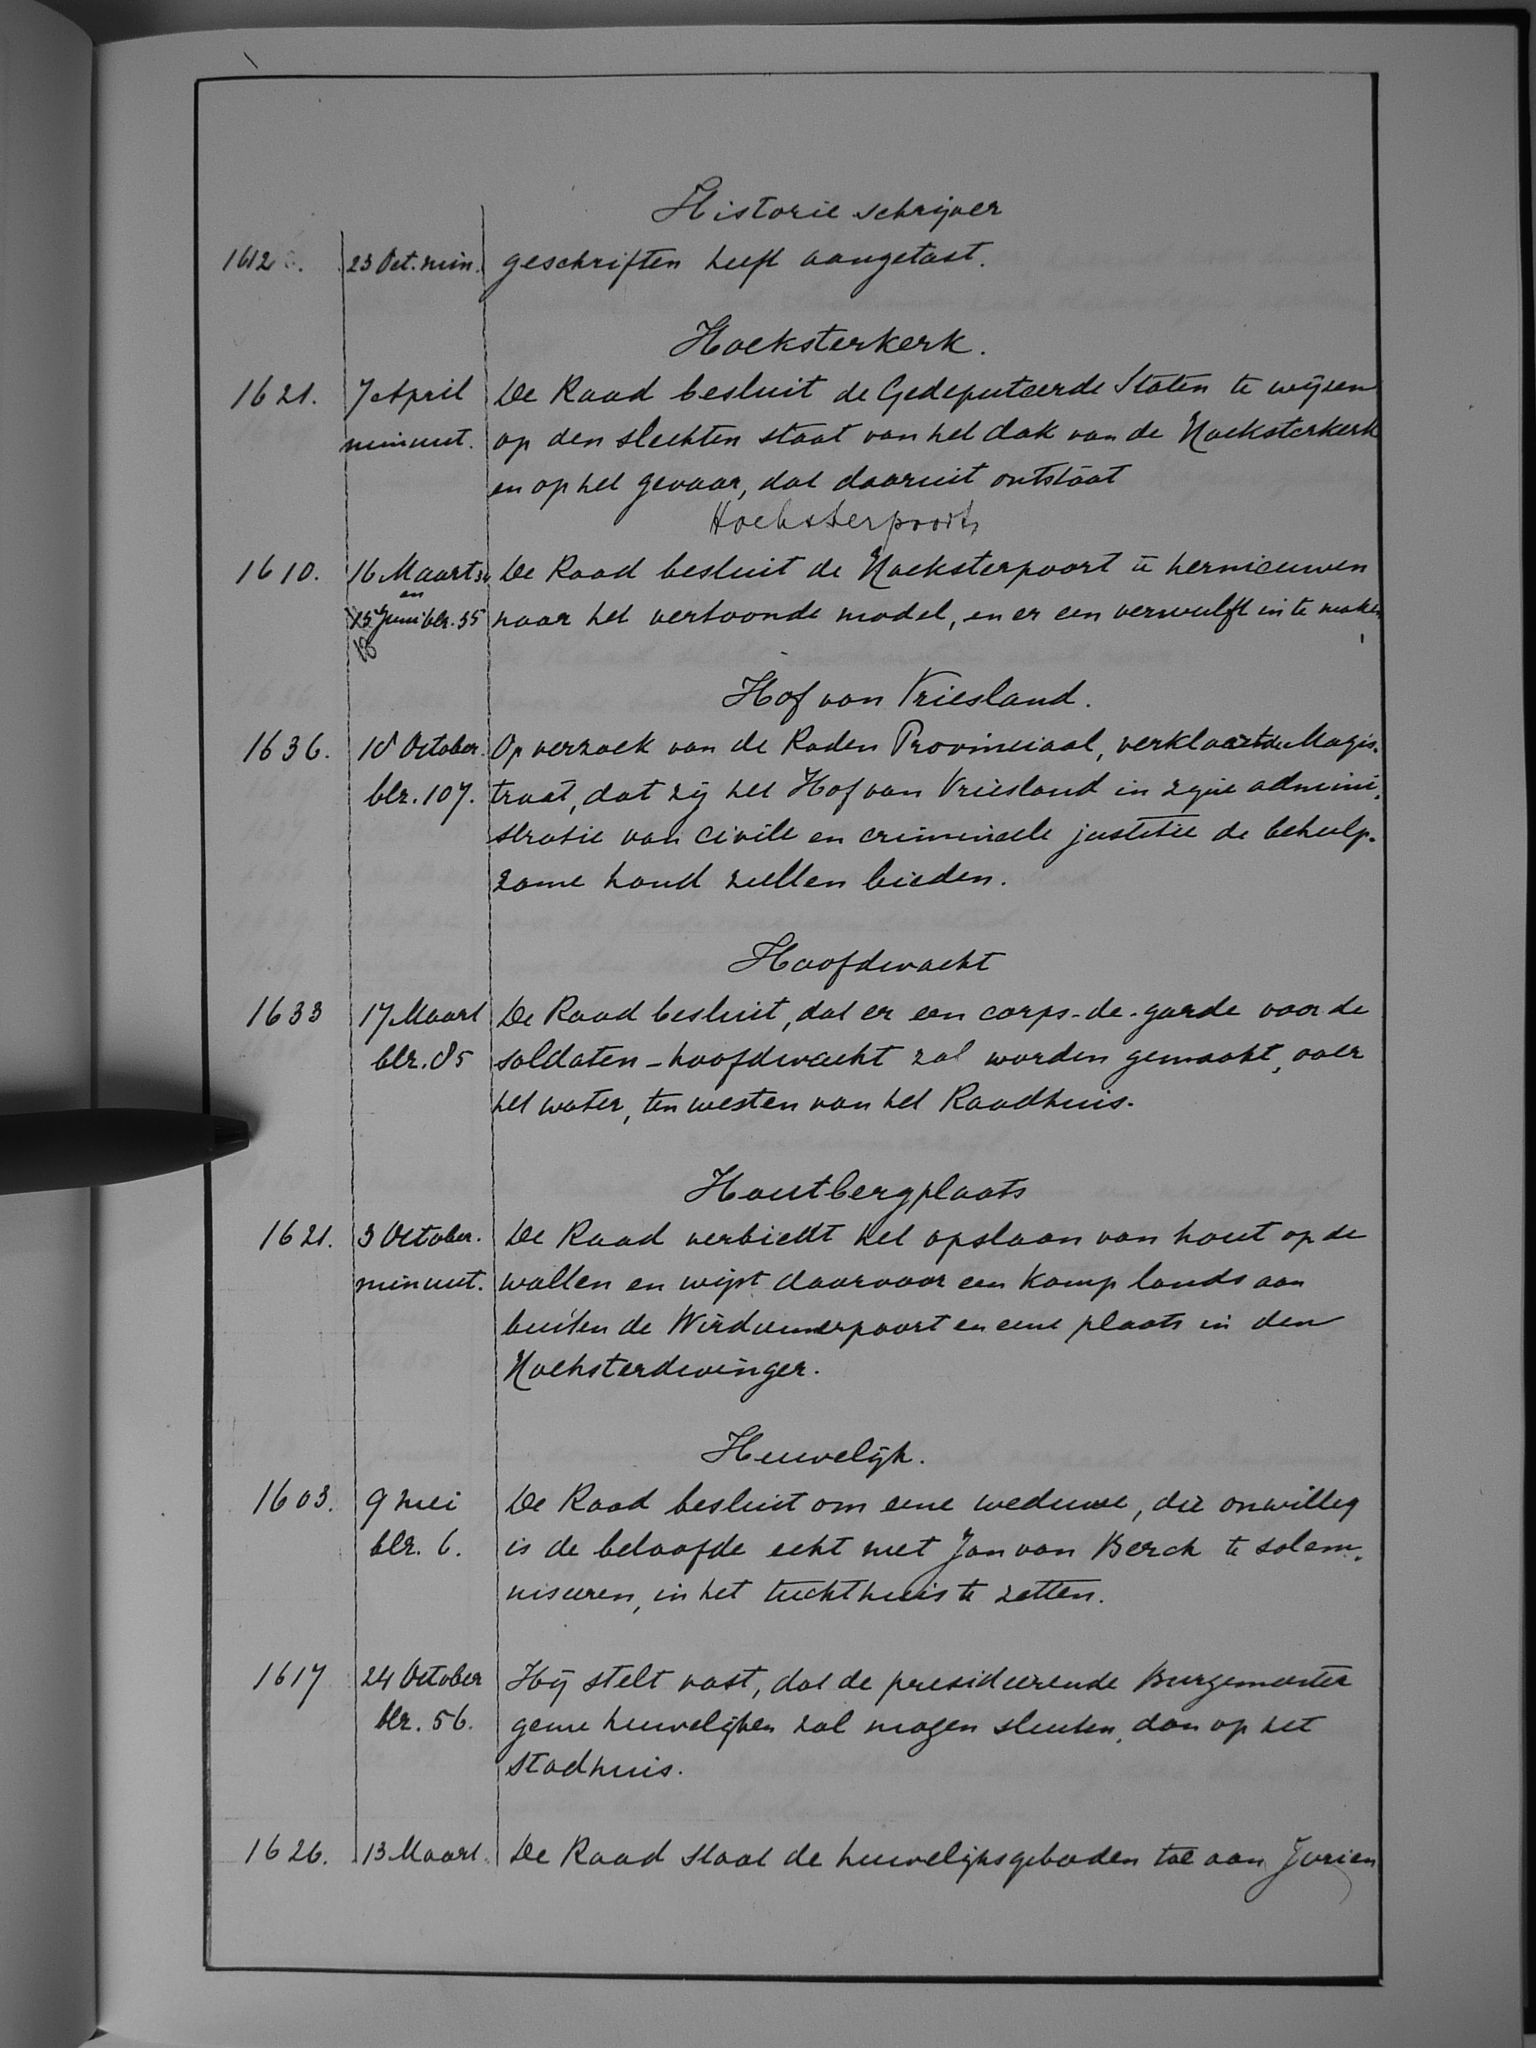 Historie schrijver
1612. 23 Oct. min. geschriften heeft aangetast.
Hoeksterkerk.
1621. 7 April De Raad besluit de Gedeputeerde Staten te wijsen
minuut. op den slechten staat van het dak van de Hoeksterkerk
en op het gevaar, dat daaruit ontstaat
Hoeksterpoort
1610. 16 Maart De Raad besluit de Hoeksterpoort te hernieuwen
en
15 Juni blz. 35 naar het vertoonde model, en er een verwulft in te maken
18
Hof van Vriesland.
1636. 18 October. Op verzoek van de Raden Provinciaal, verklaart de Magis-
blz. 107. traat, dat zij het Hof van Vriesland in zijne admini-
stratie van civile en crimineele justitie de behulp-
zame hand zullen bieden.
Hoofdwacht
1633 17 Maart De Raad besluit, dat er een corps-de-garde voor de
blz. 85 soldaten-hoofdwacht zal worden gemaakt, over
het water, ten westen van het Raadhuis.
Houtbergplaats
1621. 3 October. De Raad verbiedt het opslaan van hout op de
minuut. wallen en wijst daarvoor een kamp lands aan
buiten de Wirdumerpoort en eene plaats in den
Hoeksterdwinger.
Huwelijk.
1603. 9 mei De Raad besluit om eene weduwe, die onwillig
blz. 6. is de beloofde echt met Jan van Berck te solem-
niseeren, in het tuchthuis te zetten.
1617 24 October Hij stelt vast, dat de presideerende Burgemeester
blz. 56. geene huwelijken zal mogen sluiten, dan op het
stadhuis.
1626. 13 Maart. De Raad staat de huwelijksgeboden toe aan Jurien